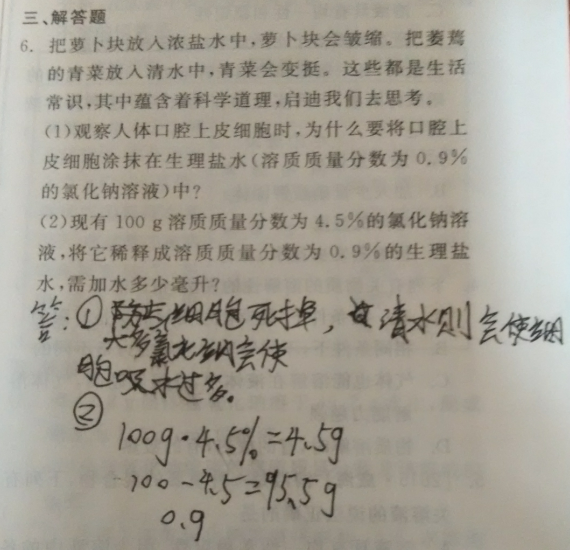 三、解答题
6. 把萝卜块放入浓盐水中,萝卜块会皱缩。把萎蔫
的青菜放入清水中,青菜会变挺。这些都是生活
常识,其中蕴含着科学道理,启迪我们去思考。
(1)观察人体口腔上皮细胞时,为什么要将口腔上
皮细胞涂抹在生理盐水(溶质质量分数为 0.9%
的氯化钠溶液)中?
(2)现有 100 g 溶质质量分数为 4.5%的氯化钠溶
液,将它稀释成溶质质量分数为 0.9%的生理盐
水,需加水多少毫升?
答:① 防止细胞死掉, 清水则会使细
太多氯化钠会使
胞吸水过多。
②
100g·4.5%=4.5g
100-4.5=95.5g
0.9